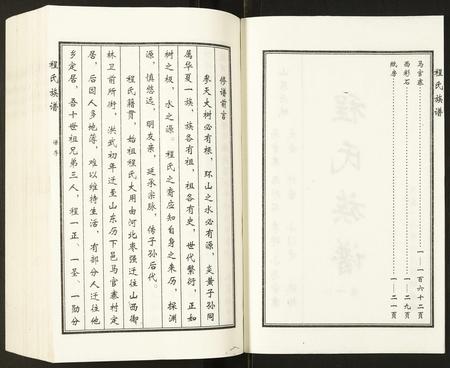 程氏族谱
马官寨……一—一百六十二页
西彩石……一—二九页
纸房……一—二一页
程氏族谱
谱序
修谱前言
参天大树必有根，环山之水必有源，炎黄子孙同
属华夏一族，族各有祖，祖各有史，世代繁衍，正如
树之根，水之源。程氏之裔应知自身之来历，探渊
源，慎悠远，明友亲，延承宗脉，传子孙后代。
程氏籍贯，始祖程氏大用由河北枣强迁往山西御
林卫前所街，洪武初年迁至山东历下邑马官寨村定
居，后因人多地薄，难以维持生活，有部分人迁往他
乡定居，吾十世祖兄弟三人，程一正、一圣、一勋分